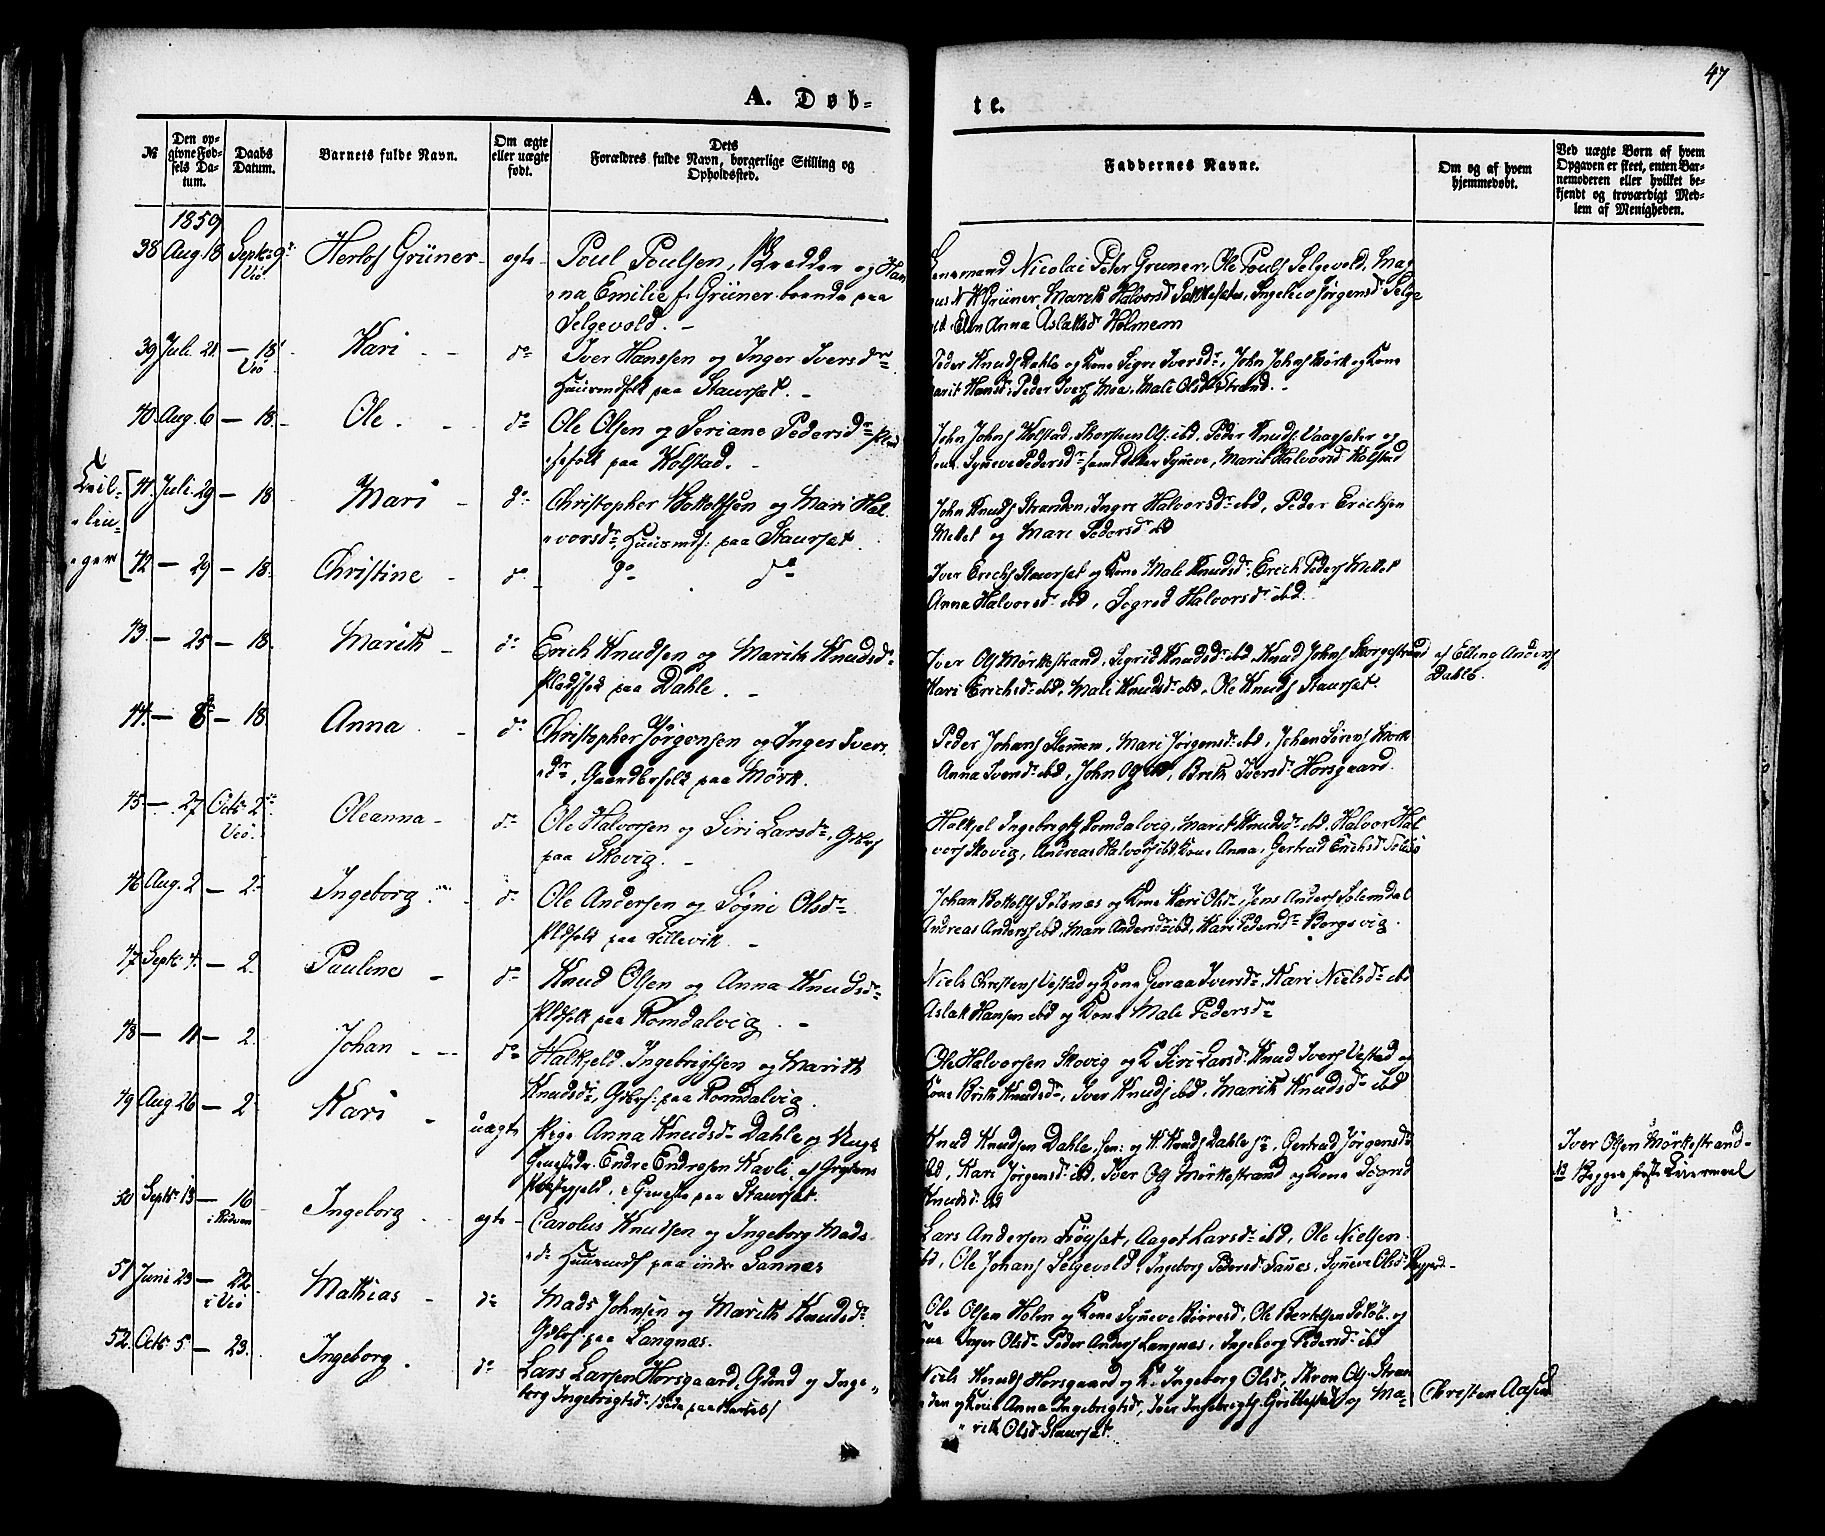 47
A. Døb-
te.
№
Den op-
givne Fød-
sels Da-
tum.
Daabs
Datum.
Barnets fulde Navn.
Om ægte
eller uægte
født.
Dets
Forældres fulde Navn, borgerlige Stilling og
Opholdssted.
Faddernes Navne.
Om og af hvem
hjemmedøbt.
Ved uægte Born af hvem
Opgaven er skeet, enten Bar-
nemoderen eller hvilket be-
kjendt og troværdigt Med-
lem af Menigheden.
1859
38 Aug 18 Septr 9de Veö Herlof Grüner egte Poul Poulsen, og Han-
na Emilie f. Grüner boende paa
Selgevold.
Lensmand Nicolai Peter Gruner, Ole Pouls Selgevold, Mag-
nus N K Grüner, Marith Halvorsd Ingelev Jørgensd Selge
Elen Anna Aslaksdr Holmem
39 Juli 21 — 18 Veö Kari do Iver Hanssen og Inger Iversdr
Huusmdfolk paa Staurset.
Peder Knuds Dahle og Kone Sigri Iversdr, John Johns Mörk og Kone
Marit Hansd, Peder Ivers Moe, Mali Olsd Strand.
40 Aug. 6 — 18 Ole do Ole Olsen og Seriane Pedersdr Plad
sefolk paa Kolstad.
John Johns Kolstad, Thorsteen Ols: ibd, Peder Knuds: Vaagsæter og
Kone Synneve Pedersdr samt datter Synneve, Marit Halvorsd Kolstad
Tvil-
lin-
ger
41. Juli 29 — 18 Mari do Christopher Bottolfsen og Mari Hal-
vorsdr, Huusmdf: paa Staurset
John Knuds Stranden, Ingri Halvorsdr ibd, Peder Erichsen
Mettet og Mari Pedersdr ibd
42 — 29 — 18. Christine do do do
Iver Erichs Staurset og Kone Mali Knudsdr, Erich Peders Mettet
Anna Halvorsdr ibd, Sigrid Halvorsdr ibd.
43. — 25 — 18. Marith do Erich Knudsen og Marith Knudsdr
Pladsfolk paa Dahle.
Iver Ols Mörkestrand, Sigrid Knudsdr ibd, Knud Johns Torgestrand
Kari Erichsdr ibd, Mali Knudsdr ibd, Ole Knuds Staurset.
af Elling Anders
Dahle.
44. — 8 — 18 Anna do Christopher Jörgensen og Inger Ivers
dr, Gaardbrfolk paa Mörk.
Peder Johans Stemmem, Mari Jörgensdr ibd, Johan Sörens Mörk
Anna Iversdr ibd, John Ols ibd, Brith Iversdr Horsgaard.
45 — 27 Octr 2den Veö. Oleanna do Ole Halvorsen og Siri Larsdr, Gdbrf
paa Skovig.
Halkjel Ingebrigts Romdalvig, Marit Knudsdr ibd, Halvor Hal
vors Skovig, Andreas Halvors ibd, Kone Anna, Gertrud Erichsd
46 Aug. 2 — 2 Ingeborg do Ole Andersen og Sögni Olsdr
Pldfolk paa Sillevik.
Johan Bottolfs Solsnæs og Kone Kari Olsdr, Jens Anders Solemdal
Andreas Anders ibd, Mari Andersdr ibd, Kari Pedersdr Borgsvig.
47 Septr 4. — 2. Pauline do Knud Olsen og Anna Knudsdr
Pldfolk paa Romdalvig.
Niels Christens Vestad og Kone Goroa Iversdr, Kari Nielsdr ibd
Aslak Hansen ibd og Kone Mali Pedersdr
48 — 11 — 2. Johan do Halkjeld Ingebrigtsen og Marith
Knudsdr, Gdbrf: paa Romdalvig.
Ole Halvorsen Skovig og K Siri Larsdr Knud Ivers Vestad og
Kone Brith Knudsdr, Iver Knuds ibd, Marith Knudsdr ibd
49 Aug 26 — 2 Kari uægte Pige Anna Knudsdr Dahle og Ungk
Endre Endresen Kavli, af Grytens
Præstegjeld, i Tjeneste paa Staurset.
Knud Knudsen Dahle, sen: og K. Knuds Dahle jr, Gertrud Jörgensdr
ibd, Kari Jörgensdr ibd, Iver Ols Mörkestrand og Kone Sigrid
Knudsdr ibd
Iver Olsen Mörkestrand
50 Septr 13 — 16 i Rödven Ingeborg egte Carolus Knudsen og Ingeborg Mads
dr Huusmdf paa indre Sannæs
Lars Andersen Fröyset, Aagot Larsdr ibd, Ole Nielsen
ibd, Ole Johans Selgevold, Ingeborg Pedersdr Sannes, Synneve Olsdr
51 Juni 23 — 22 i Veö Mathias do Mads Johnsen og Marith Knudsdr
Gdbrf paa Langnæs.
Ole Olsen Holm og Kone Synneve Ole Bertelsen og
Kone Inger Olsdr Peder Anders Langnæs, Ingeborg Pedersdr ibd
52. Octr 5 — 23. Ingeborg do Lars Larsen Horsgaard, Gdmd og Inge-
borg Ingebrigtsdr
Niels Knuds Horsgaard og K. Ingeborg Olsdr, Thron Ols Stran
den og Kone Anna Ingebrigtsdr, Iver Ingebrigts Grillestad og Ma-
rith Olsd Staurset.
Christen Aasen